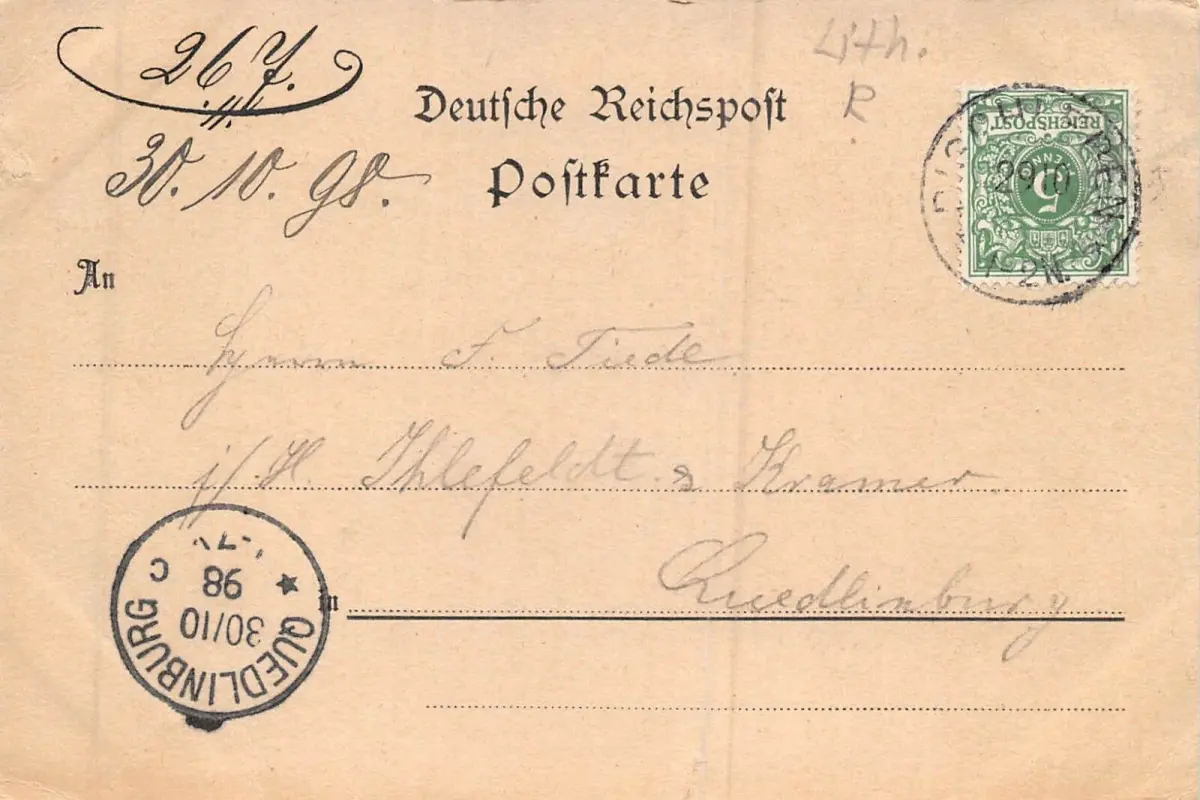 267.
30. 10. 98.
Lith.
R
Deutsche Reichspost
Postkarte
REICHSPOST
5
29 10
1-2N.
An
Herrn F. Tiede
i/. H. Ihlefeldt & Kramer
Quedlinburg
in
QUEDLINBURG
* c
30/10
98